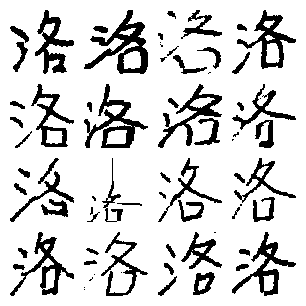 洛洛洛洛
洛洛洛洛
洛洛洛洛
洛洛洛洛